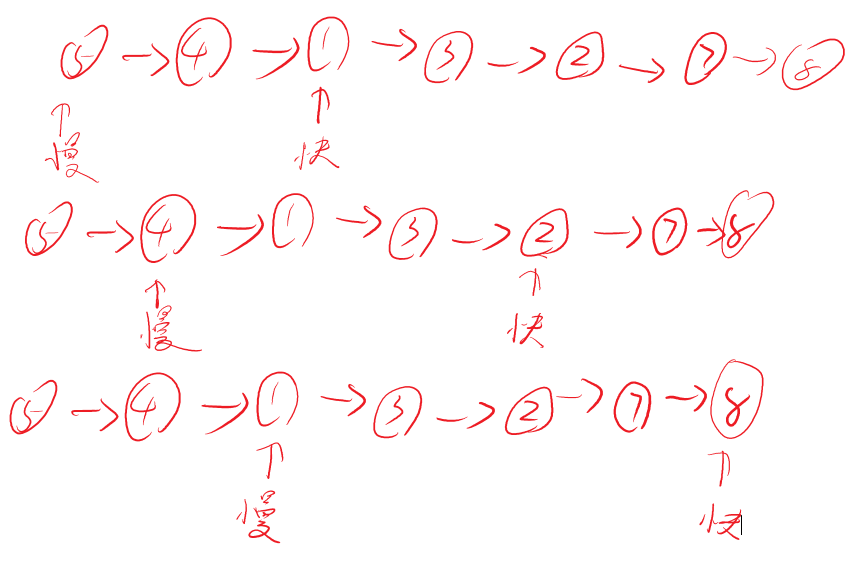 5 → 4 → 1 → 3 → 2 → 7 → 8
↑ ↑
慢 快
5 → 4 → 1 → 3 → 2 → 7 → 8
↑ ↑
慢 快
5 → 4 → 1 → 3 → 2 → 7 → 8
↑ ↑
慢 快